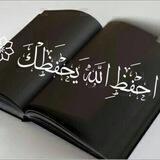 احفَظِ اللَّهَ يَحْفَظْكَ